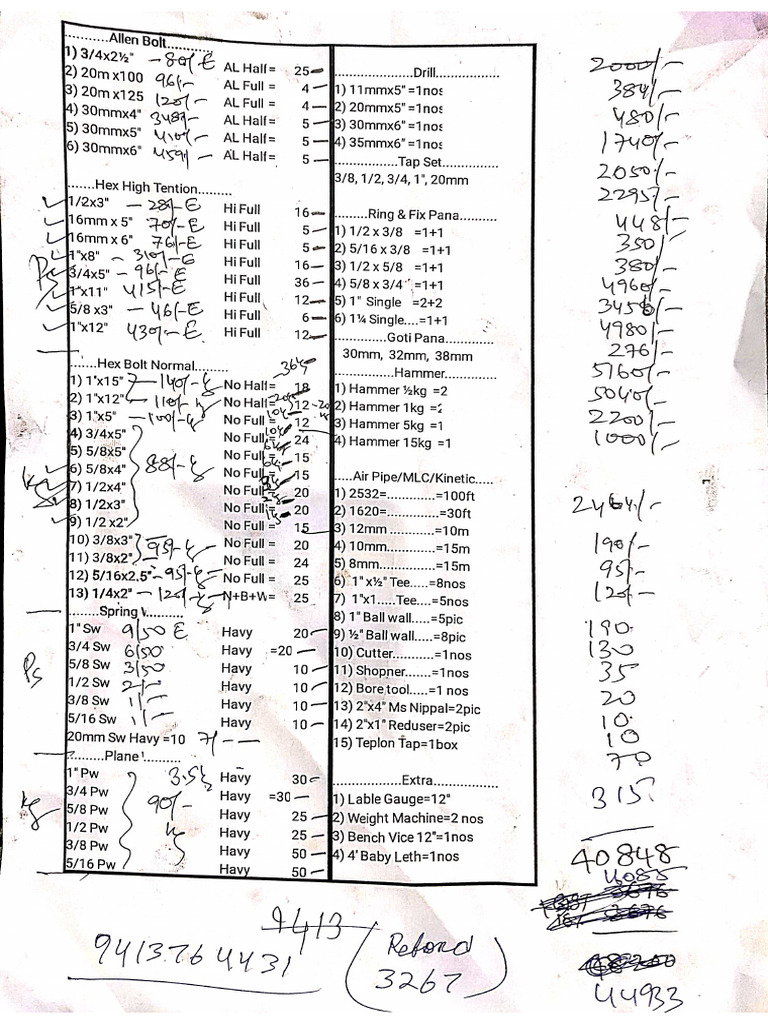 Allen Bolt..........
1) 3/4x2½" - 80/- E AL Half= 25
2) 20m x100 96/- AL Full = 4
3) 20m x125 120/- AL Full = 4
4) 30mmx4" 348/- AL Half= 5
5) 30mmx5" 410/- AL Half= 5
6) 30mmx6" 459/- AL Half= 5
.......Hex High Tention.........
1/2x3" - 28/- E Hi Full 16
16mm x 5" 70/- E Hi Full 5
16mm x 6" 76/- E Hi Full 5
1"x8" - 310/- E Hi Full 16
3/4x5" - 96/- E Hi Full 36
1"x11" 415/- E Hi Full 12
5/8 x3" - 46/- E Hi Full 6
1"x12" 430/- E Hi Full 12
.......Hex Bolt Normal.........
1) 1"x15" 140/- No Half= 18
2) 1"x12" 110/- No Half= 12
3) 1"x5" - 100/- No Full = 12
4) 3/4x5" No Full = 24
5) 5/8x5" No Full = 15
6) 5/8x4" 88/- No Full = 15
7) 1/2x4" No Full = 20
8) 1/2x3" No Full = 20
9) 1/2 x2" No Full = 15
10) 3/8x3" 95/- No Full = 20
11) 3/8x2" No Full = 24
12) 5/16x2,5" - 95/- No Full = 25
13) 1/4x2" - 120/- N+B+W= 25
.......Spring
1" Sw 9/50 E Havy 20
3/4 Sw 6/50 Havy =20
5/8 Sw 3/50 Havy 10
1/2 Sw 2/- Havy 10
3/8 Sw 1/- Havy 10
5/16 Sw 1/- Havy 10
20mm Sw Havy =10 7/-
Ps
.........Plane
1" Pw 3.5 Havy 30
3/4 Pw Havy =30
5/8 Pw 90/- Havy 25
1/2 Pw Havy 25
3/8 Pw Havy 50
5/16 Pw Havy 50
kg
..................Drill..................
1) 11mmx5" =1nos
2) 20mmx5" =1nos
3) 30mmx6" =1nos
4) 35mmx6" =1nos
..............Tap Set..............
3/8, 1/2, 3/4, 1", 20mm
........Ring & Fix Pana.........
1) 1/2 x 3/8 =1+1
2) 5/16 x 3/8 =1+1
3) 1/2 x 5/8 =1+1
4) 5/8 x 3/4 =1+1
5) 1" Single =2+2
6) 1¼ Single....=1+1
.............Goti Pana.............
30mm, 32mm, 38mm
..............Hammer..............
1) Hammer ½kg =2
2) Hammer 1kg =2
3) Hammer 5kg =1
4) Hammer 15kg =1
.....Air Pipe/MLC/Kinetic.....
1) 2532=............=100ft
2) 1620=............=30ft
3) 12mm ............=10m
4) 10mm.............=15m
5) 8mm..............=15m
6) 1" x½" Tee.....=8nos
7) 1"x1.....Tee....=5nos
8) 1" Ball wall.....=5pic
9) ½" Ball wall.....=8pic
10) Cutter...........=1nos
11) Shopner.......=1nos
12) Bore tool.....=1 nos
13) 2"x4" Ms Nippal=2pic
14) 2"x1" Reduser=2pic
15) Teplon Tap=1box
...............Extra...............
1) Lable Gauge=12"
2) Weight Machine=2 nos
3) Bench Vice 12"=1nos
4) 4' Baby Leth=1nos
2000/-
384/-
480/-
1740/-
2050/-
2295/-
448/-
350/
380/-
4960/-
3456/-
4980/-
276/-
5160/-
5040/-
2200/-
1000/-
2464/-
190/-
95/-
120/-
190.
130
35
20
10.
10
70
315
40848
4085
44933
9413
9413764431
Refond
3267